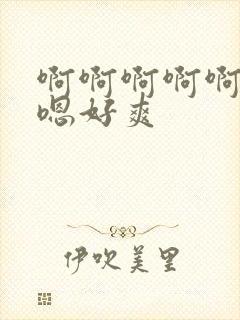 啊啊啊啊啊
嗯好爽
伊吹美里